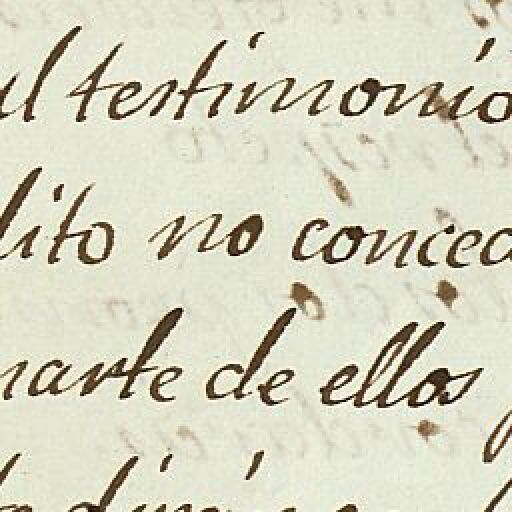 ul testimonio
lito no conced
narte de ellos